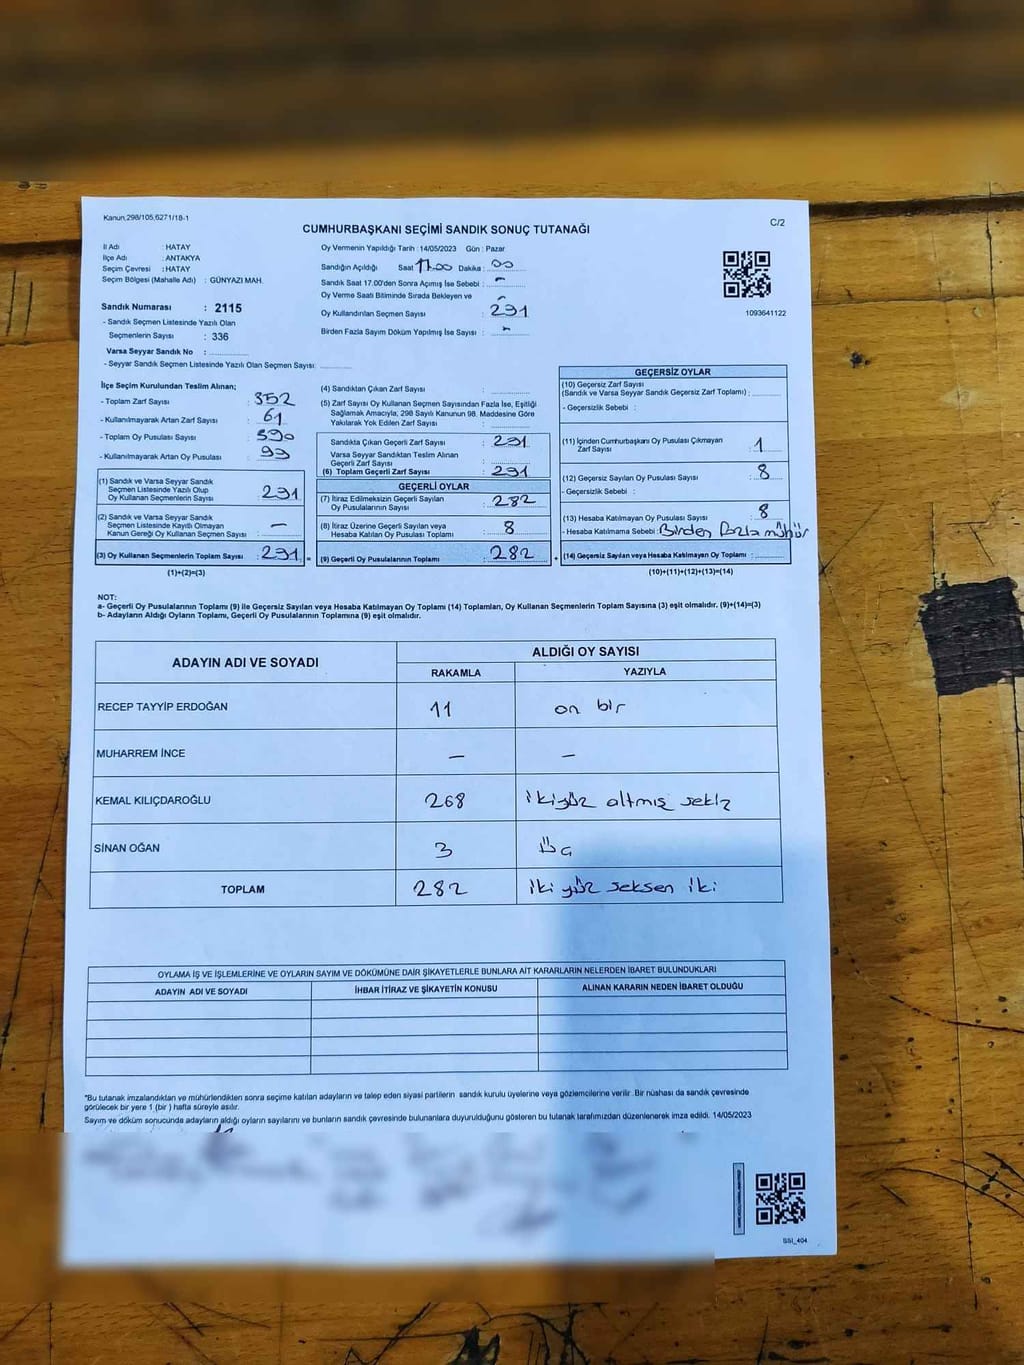 Kanun,298/105,6271/18-1
C/2
CUMHURBAŞKANI SEÇİMİ SANDIK SONUÇ TUTANAĞI
İl Adı : HATAY
İlçe Adı : ANTAKYA
Seçim Çevresi : HATAY
Seçim Bölgesi (Mahalle Adı) : GÜNYAZI MAH.
Sandık Numarası : 2115
- Sandık Seçmen Listesinde Yazılı Olan
Seçmenlerin Sayısı : 336
Varsa Seyyar Sandık No :
- Seyyar Sandık Seçmen Listesinde Yazılı Olan Seçmen Sayısı:
Oy Vermenin Yapıldığı Tarih : 14/05/2023 Gün : Pazar
Sandığın Açıldığı Saat 17.00 Dakika : 00
Sandık Saat 17.00'den Sonra Açılmış İse Sebebi : -
Oy Verme Saati Bitiminde Sırada Bekleyen ve
Oy Kullandırılan Seçmen Sayısı : 291
Birden Fazla Sayım Döküm Yapılmış İse Sayısı : -
1093641122
İlçe Seçim Kurulundan Teslim Alınan;
- Toplam Zarf Sayısı : 352
- Kullanılmayarak Artan Zarf Sayısı : 61
- Toplam Oy Pusulası Sayısı : 390
- Kullanılmayarak Artan Oy Pusulası : 99
(1) Sandık ve Varsa Seyyar Sandık
Seçmen Listesinde Yazılı Olup
Oy Kullanan Seçmenlerin Sayısı : 291
(2) Sandık ve Varsa Seyyar Sandık
Seçmen Listesinde Kayıtlı Olmayan
Kanun Gereği Oy Kullanan Seçmen Sayısı : -
(3) Oy Kullanan Seçmenlerin Toplam Sayısı : 291 =
(1)+(2)=(3)
(4) Sandıktan Çıkan Zarf Sayısı :
(5) Zarf Sayısı Oy Kullanan Seçmen Sayısından Fazla İse, Eşitliği
Sağlamak Amacıyla, 298 Sayılı Kanunun 98. Maddesine Göre
Yakılarak Yok Edilen Zarf Sayısı :
Sandıkta Çıkan Geçerli Zarf Sayısı : 291
Varsa Seyyar Sandıktan Teslim Alınan
Geçerli Zarf Sayısı :
(6) Toplam Geçerli Zarf Sayısı : 291
GEÇERLİ OYLAR
(7) İtiraz Edilmeksizin Geçerli Sayılan
Oy Pusulalarının Sayısı : 282
(8) İtiraz Üzerine Geçerli Sayılan veya
Hesaba Katılan Oy Pusulaları Toplamı : 8
(9) Geçerli Oy Pusulalarının Toplamı : 282 +
GEÇERSİZ OYLAR
(10) Geçersiz Zarf Sayısı
(Sandık ve Varsa Seyyar Sandık Geçersiz Zarf Toplamı) :
- Geçersizlik Sebebi :
(11) İçinden Cumhurbaşkanı Oy Pusulası Çıkmayan
Zarf Sayısı : 1
(12) Geçersiz Sayılan Oy Pusulası Sayısı : 8
- Geçersizlik Sebebi :
(13) Hesaba Katılmayan Oy Pusulası Sayısı : 8
- Hesaba Katılmama Sebebi : Birden fazla mühür
(14) Geçersiz Sayılan veya Hesaba Katılmayan Oy Toplamı :
(10)+(11)+(12)+(13)=(14)
NOT:
a- Geçerli Oy Pusulalarının Toplamı (9) ile Geçersiz Sayılan veya Hesaba Katılmayan Oy Toplamı (14) Toplamları, Oy Kullanan Seçmenlerin Toplam Sayısına (3) eşit olmalıdır. (9)+(14)=(3)
b- Adayların Aldığı Oyların Toplamı, Geçerli Oy Pusulalarının Toplamına (9) eşit olmalıdır.
ADAYIN ADI VE SOYADI
ALDIĞI OY SAYISI
RAKAMLA YAZIYLA
RECEP TAYYİP ERDOĞAN 11 on bir
MUHARREM İNCE - -
KEMAL KILIÇDAROĞLU 268 iki yüz altmış sekiz
SİNAN OĞAN 3 Üç
TOPLAM 282 iki yüz seksen iki
OYLAMA İŞ VE İŞLEMLERİNE VE OYLARIN SAYIM VE DÖKÜMÜNE DAİR ŞİKAYETLERLE BUNLARA AİT KARARLARIN NELERDEN İBARET BULUNDUKLARI
ADAYIN ADI VE SOYADI İHBAR İTİRAZ VE ŞİKAYETİN KONUSU ALINAN KARARIN NEDEN İBARET OLDUĞU
*Bu tutanak imzalandıktan ve mühürlendikten sonra seçime katılan adayların ve talep eden siyasi partilerin sandık kurulu üyelerine veya gözlemcilerine verilir. Bir nüshası da sandık çevresinde
görülecek bir yere 1 (bir ) hafta süreyle asılır.
Sayım ve döküm sonucunda adayların aldığı oyların sayılarını ve bunların sandık çevresinde bulunanlara duyurulduğunu gösteren bu tutanak tarafımızdan düzenlenerek imza edildi. 14/05/2023
BSI_404